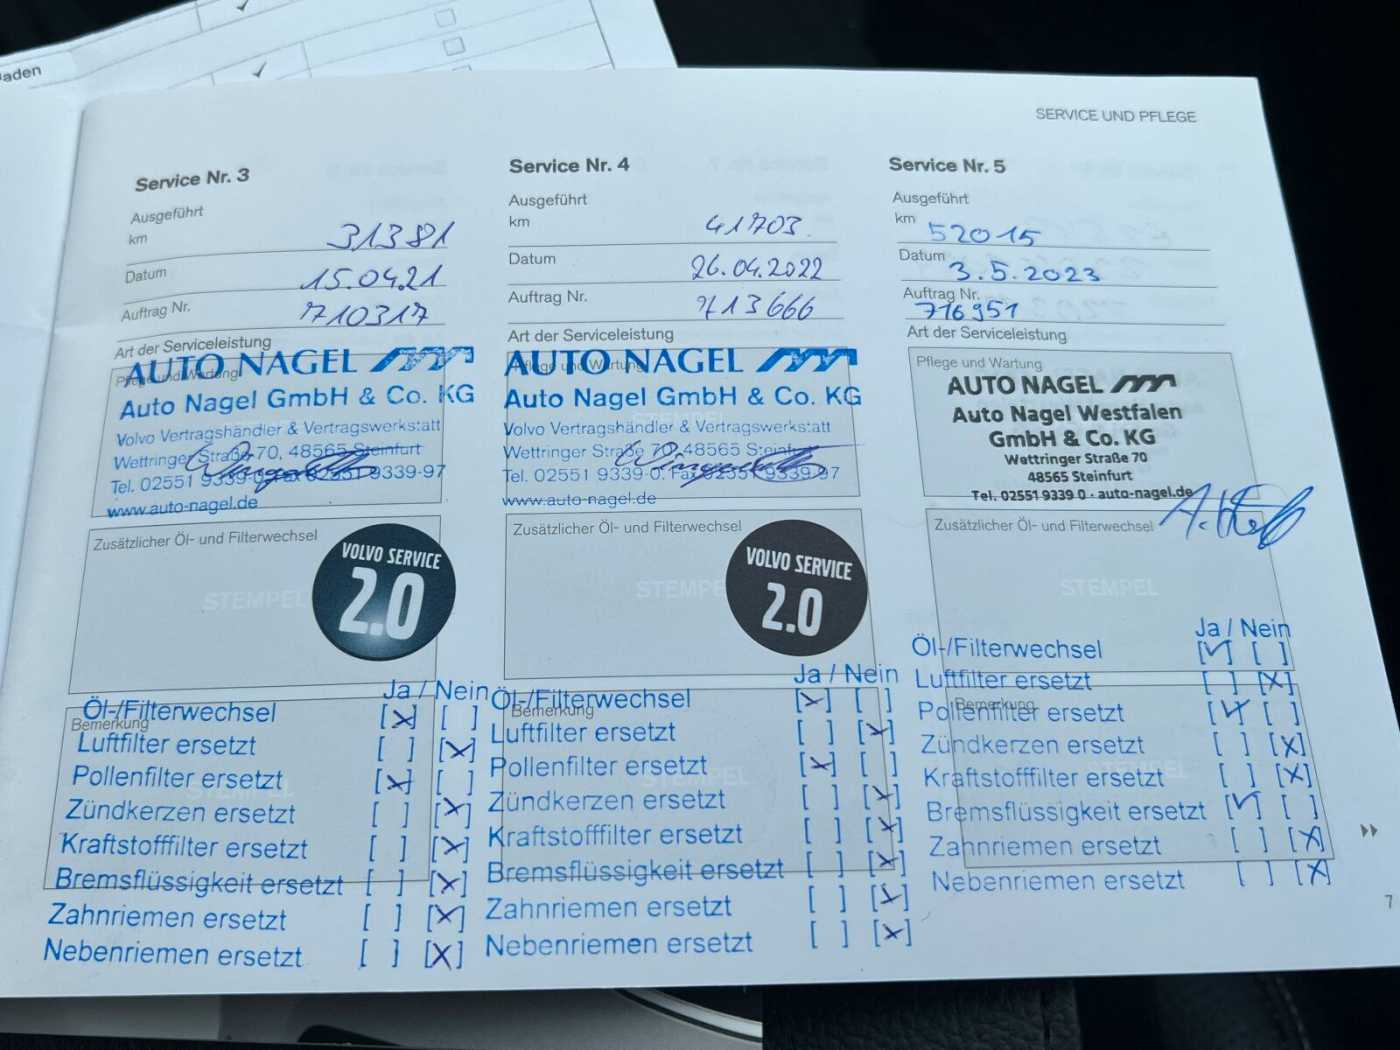 aden
SERVICE UND PFLEGE
Service Nr. 3
Ausgeführt
km 31381
Datum 15.04.21
Auftrag Nr. 710317
Art der Serviceleistung
Pflege und Wartung
AUTO NAGEL
Auto Nagel GmbH & Co. KG
Volvo Vertragshändler & Vertragswerkstatt
Wettringer Straße 70, 48565 Steinfurt
Tel. 02551 9339-0, Fax 02551 9339-97
www.auto-nagel.de
Zusätzlicher Öl- und Filterwechsel
STEMPEL
VOLVO SERVICE
2.0
Ja / Nein
Öl-/Filterwechsel [x] [ ]
Bemerkung
Luftfilter ersetzt [ ] [x]
Pollenfilter ersetzt [x] [ ]
STEMPEL
Zündkerzen ersetzt [ ] [x]
Kraftstofffilter ersetzt [ ] [x]
Bremsflüssigkeit ersetzt [ ] [x]
Zahnriemen ersetzt [ ] [x]
Nebenriemen ersetzt [ ] [x]
Service Nr. 4
Ausgeführt
km 41703
Datum 26.04.2022
Auftrag Nr. 713666
Art der Serviceleistung
Pflege und Wartung
AUTO NAGEL
Auto Nagel GmbH & Co. KG
STEMPEL
Volvo Vertragshändler & Vertragswerkstatt
Wettringer Straße 70, 48565 Steinfurt
Tel. 02551 9339-0, Fax 02551 9339-97
www.auto-nagel.de
Zusätzlicher Öl- und Filterwechsel
STEMPEL
VOLVO SERVICE
2.0
Ja / Nein
Öl-/Filterwechsel [x] [ ]
Bemerkung
Luftfilter ersetzt [ ] [x]
Pollenfilter ersetzt [x] [ ]
STEMPEL
Zündkerzen ersetzt [ ] [x]
Kraftstofffilter ersetzt [ ] [x]
Bremsflüssigkeit ersetzt [ ] [x]
Zahnriemen ersetzt [ ] [x]
Nebenriemen ersetzt [ ] [x]
Service Nr. 5
Ausgeführt
km 52015
Datum 3.5.2023
Auftrag Nr. 716951
Art der Serviceleistung
Pflege und Wartung
AUTO NAGEL
Auto Nagel Westfalen
GmbH & Co. KG
Wettringer Straße 70
48565 Steinfurt
Tel. 02551 9339 0 · auto-nagel.de
Zusätzlicher Öl- und Filterwechsel
STEMPEL
Ja / Nein
Öl-/Filterwechsel [✓] [ ]
Luftfilter ersetzt [ ] [x]
Bemerkung
Pollenfilter ersetzt [✓] [ ]
Zündkerzen ersetzt [ ] [x]
STEMPEL
Kraftstofffilter ersetzt [ ] [x]
Bremsflüssigkeit ersetzt [✓] [ ]
Zahnriemen ersetzt [ ] [x]
Nebenriemen ersetzt [ ] [x]
7